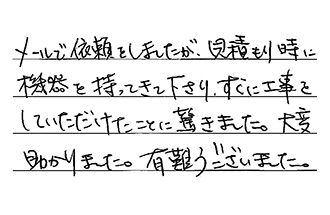 メールで依頼をしましたが、見積もり時に
機器を持ってきて下さり、すぐに工事を
していただけたことに驚きました。大変
助かりました。有難うございました。